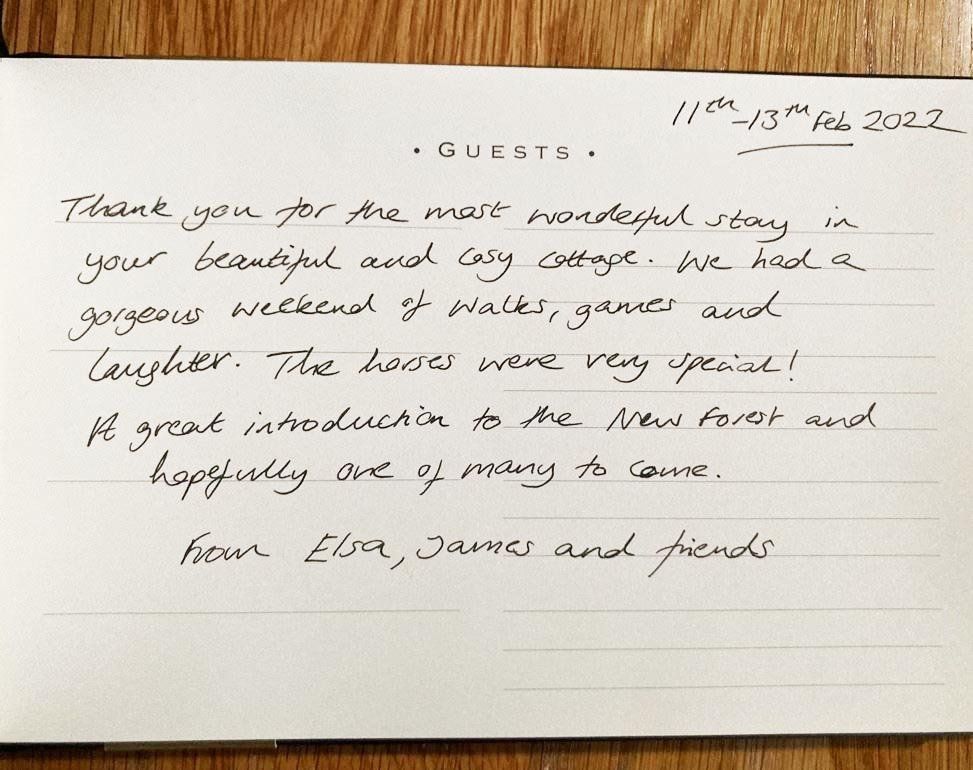 11th-13th Feb 2022
• GUESTS •
Thank you for the most wonderful stay in
your beautiful and cosy cottage. We had a
gorgeous weekend of walks, games and
laughter. The horses were very special!
A great introduction to the New Forest and
hopefully one of many to come.
From Elsa, James and friends